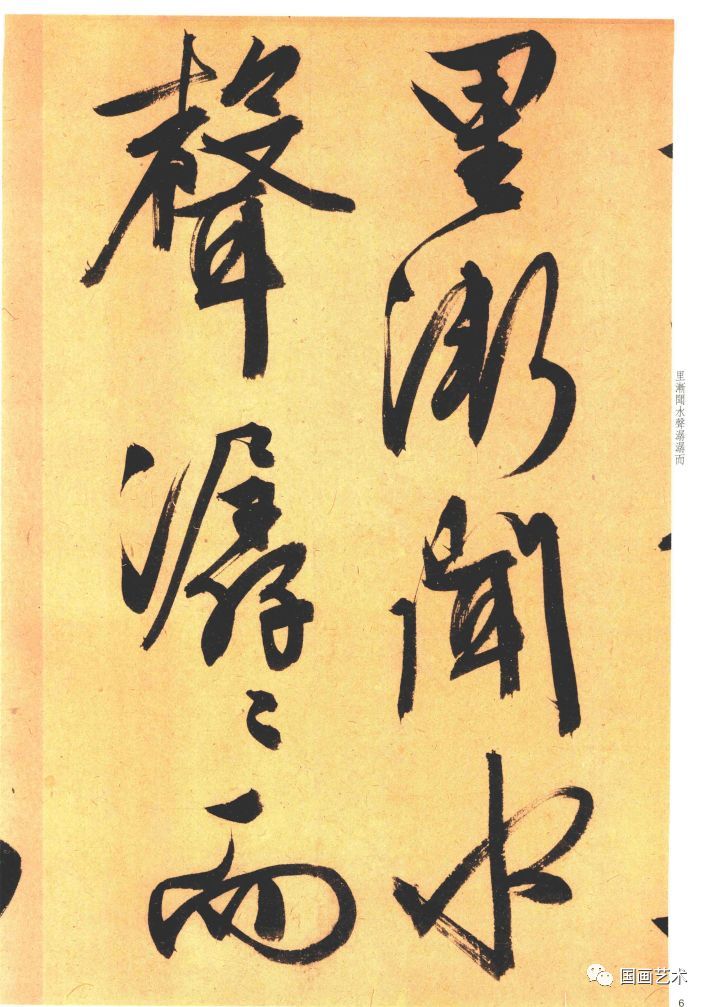 里漸聞水
聲潺〻而
里漸聞水聲潺潺而
国画艺术
6